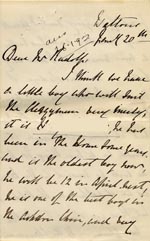 Jany 20th
ans
Dear Mr Rudolf
I think we have
a little boy who will suit
the Clergyman very nicely,
it is            he has
been in the Home some years,
and is the oldest boy now,
he will be 12 in April next,
he is one of the best boys in
the          Choir, and very